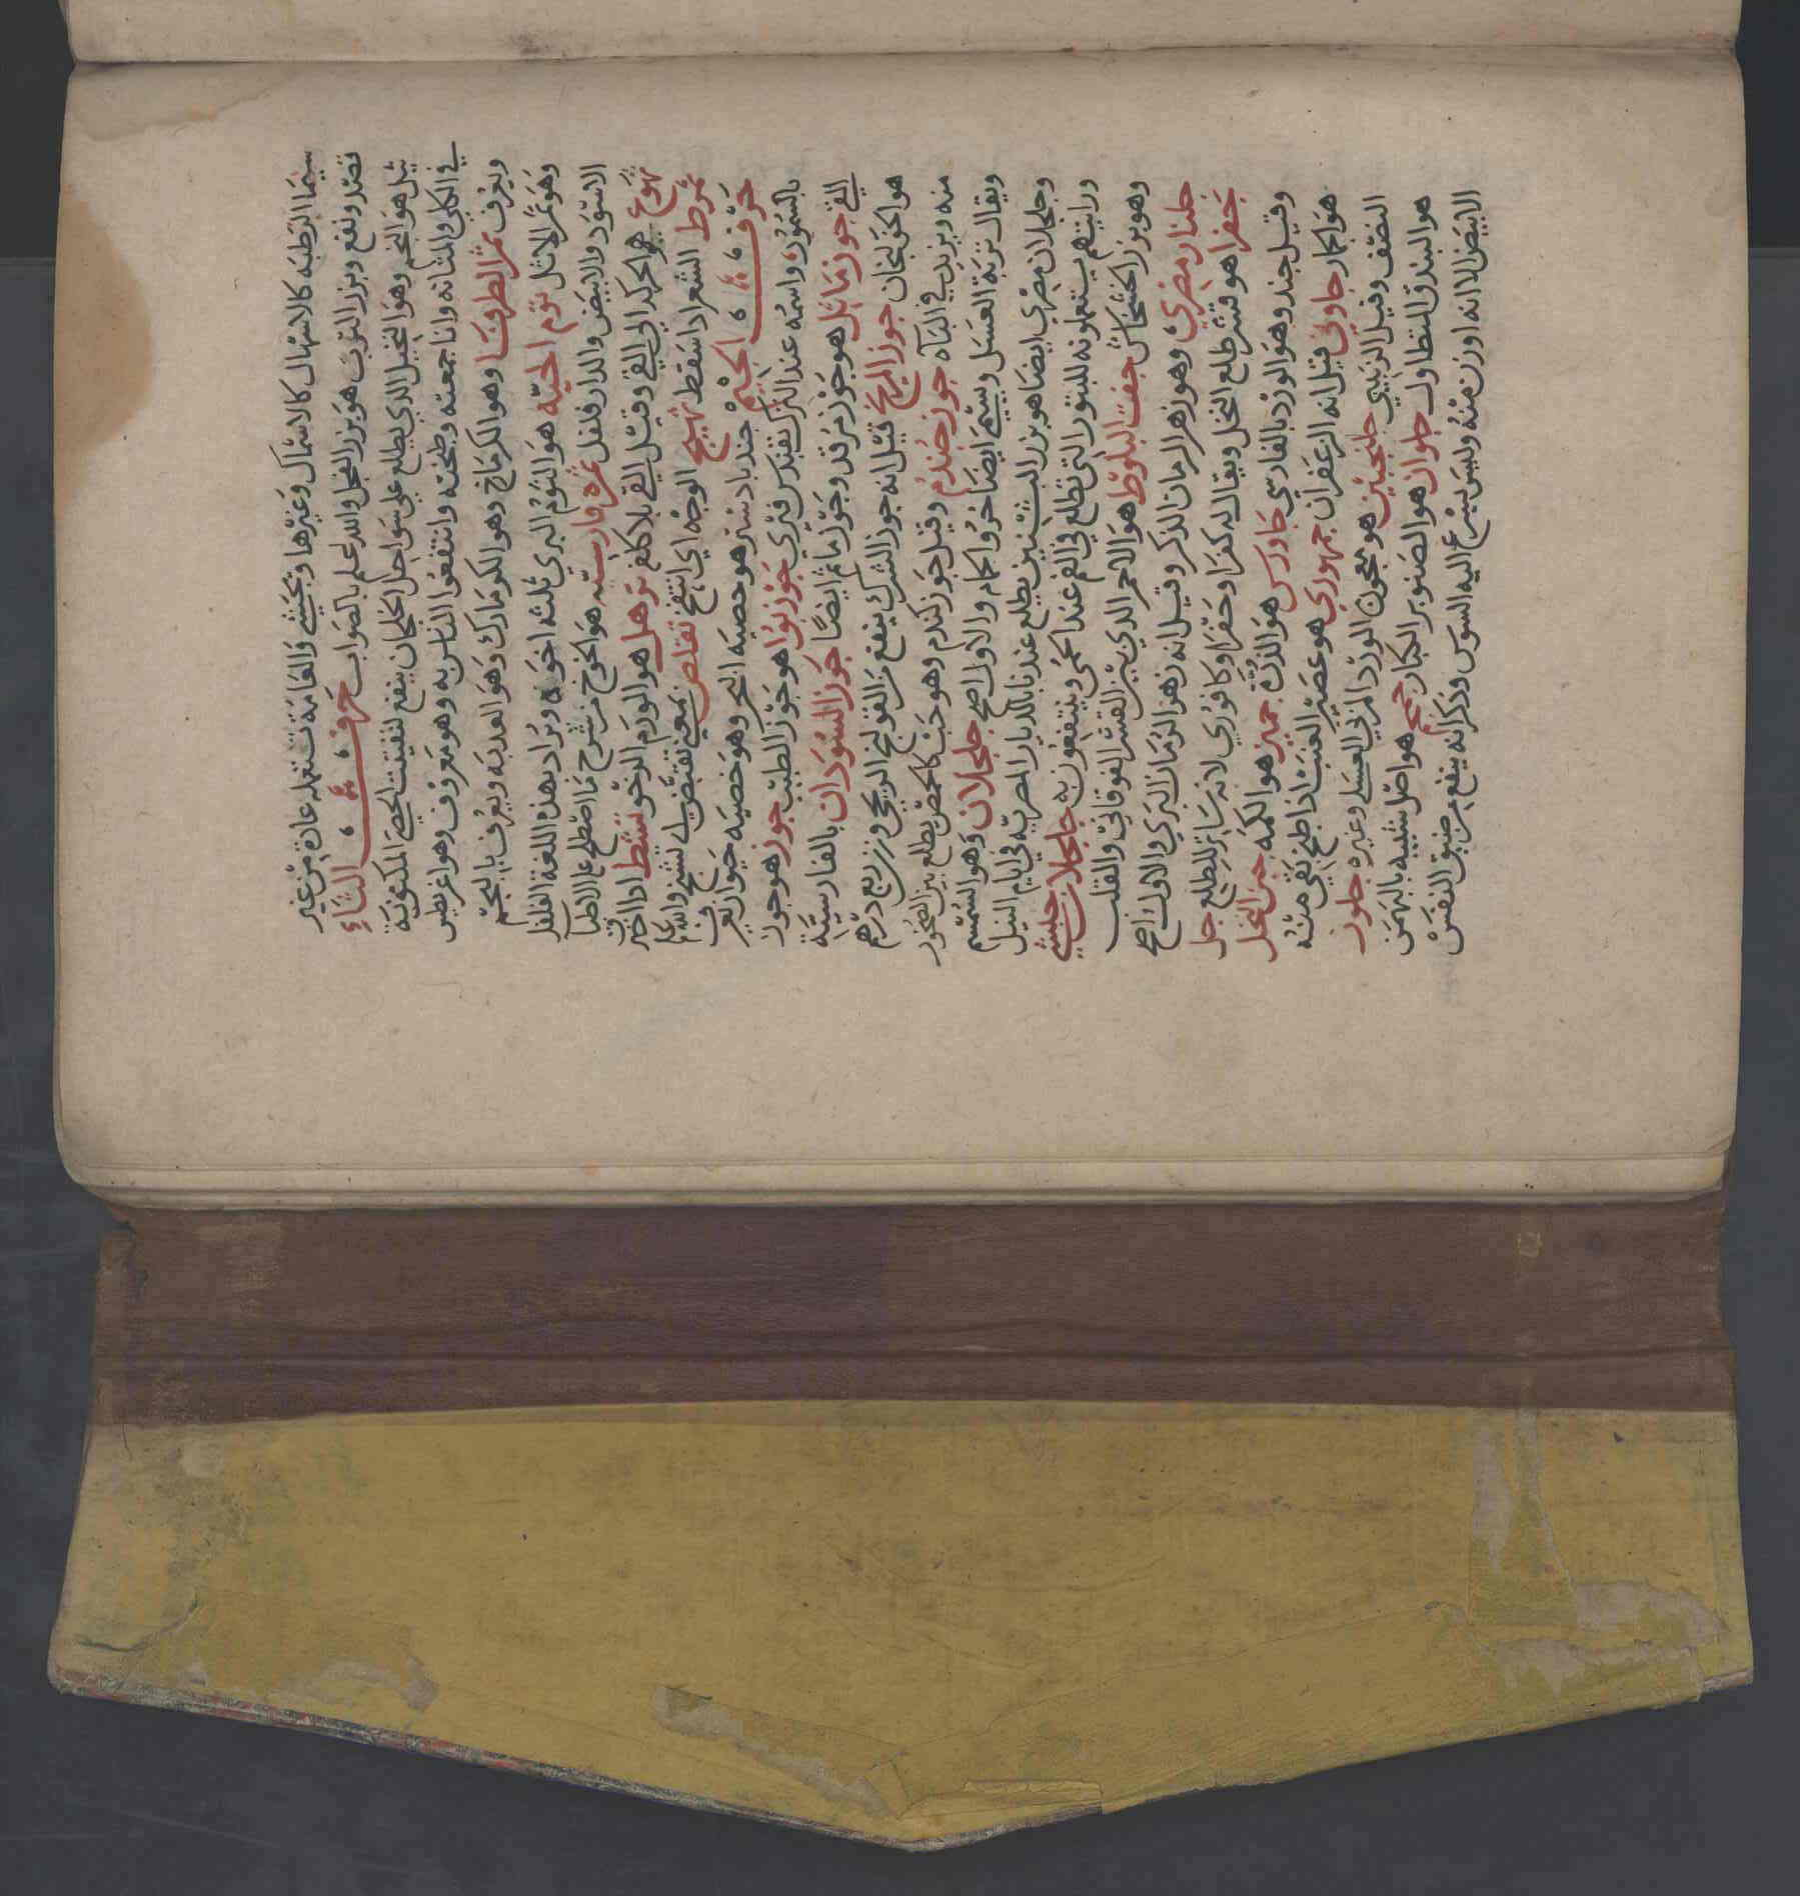 سيما الرطبه كالاسهال وغيرها وتحبس والعامة تستعمله عادة من غير
تصدر ونفع وبزر التوت هو بزر الفجل والله اعلم بالصواب حرف الثاء
ثيل هو النجم وهو النخيل الذي يطلع علي سواحل الخلجان ينفع لتفتيت الحصي المتكونة
في الكلي والمثانه وانا جمعته وطبخته وانتفعوا الناس به وهو معروف وهو اغريطس
ويعرف ثمر الطرفا وهو الكزمازج وهو الكزمازك وهو العدبه ويعرف بالنجم
وهو ثمر الاثل ثوم الحيه هو الثوم البري ثلثه اخوه ويراد بهذه اللغة الفلفل
الاسود والابيض والدار فلفل ثمره فارسيه هو الخوخ ما اصطلح علي الاطبا
تهوع هو الحركه الي القي وقيل القي بلا كلفه ترهل هو الورم الرخو
تمرط الشعر اذا سقط تهييج الوجه اي انتفخ تقلص بمعني تقبض اي تشنج والله اعلم
حرف الجيم جندبادستر هو خصيه البحر وهو خصيه حيوان يعرف
بالسمور واسمه عند الترك قندس جوزبوا هو جوز الطيب جوز هو جوز
القي جوز ماثل هو جوز مرقد وجوز ماثم ايضا جوز السودان بالفارسية
هو الخولنجان جوز المرج قيل انه جوز الشرك ينفع من القولنج الريحي وزن ربع درهم
منه ويزيد في الباه جوز جندم وقيل جوز كندم وهو حب كالحمص يطلع بين الصخور
ويقال تربة العسل ويسمي ايضا خرؤ الحمام والاول اصح جلجلان وهو السمسم
وجلجلان مصري ايضا هو بزر البشنين يطلع عندنا بالديار المصريه في ايام النيل
ورايتهم يستعملونه للبثور التي تطلع في الفم عند الحمي وينتفعون به جلجلان حبشي
وهو بزر الخشخاش جفت البلوط هو الاحمر الذي بين القشر الفوقاني والقلب
جلنار مصري وهو زهر الرمان الذكر وقيل انه زهر الرمان البري والاول اصح
جفرا هو قشر طلع النخل ويقال له كفرا وحفرا وكافوري لانه ساتر للطلع جل
وقيل جند وهو الورد بالفارسي جاورس هو الذرة جميز هو الكمه جبن النخل
هو الجمار جاوني قيل انه الزعفران جمهوري هو عصير العنب اذا طبخ بقي منه
النصف وقيل الزبيبي جلنجبين هو معجون الورد المربي العسلي وغيره جلوز
هو البندق المتطاول جلوان هو الصنوبر الكبار جحج هو اصل شبيه بالبهمن
الابيض الا انه اوزن منه وليس يسرع اليه السوس وذكر انه ينفع من ضيق النفس